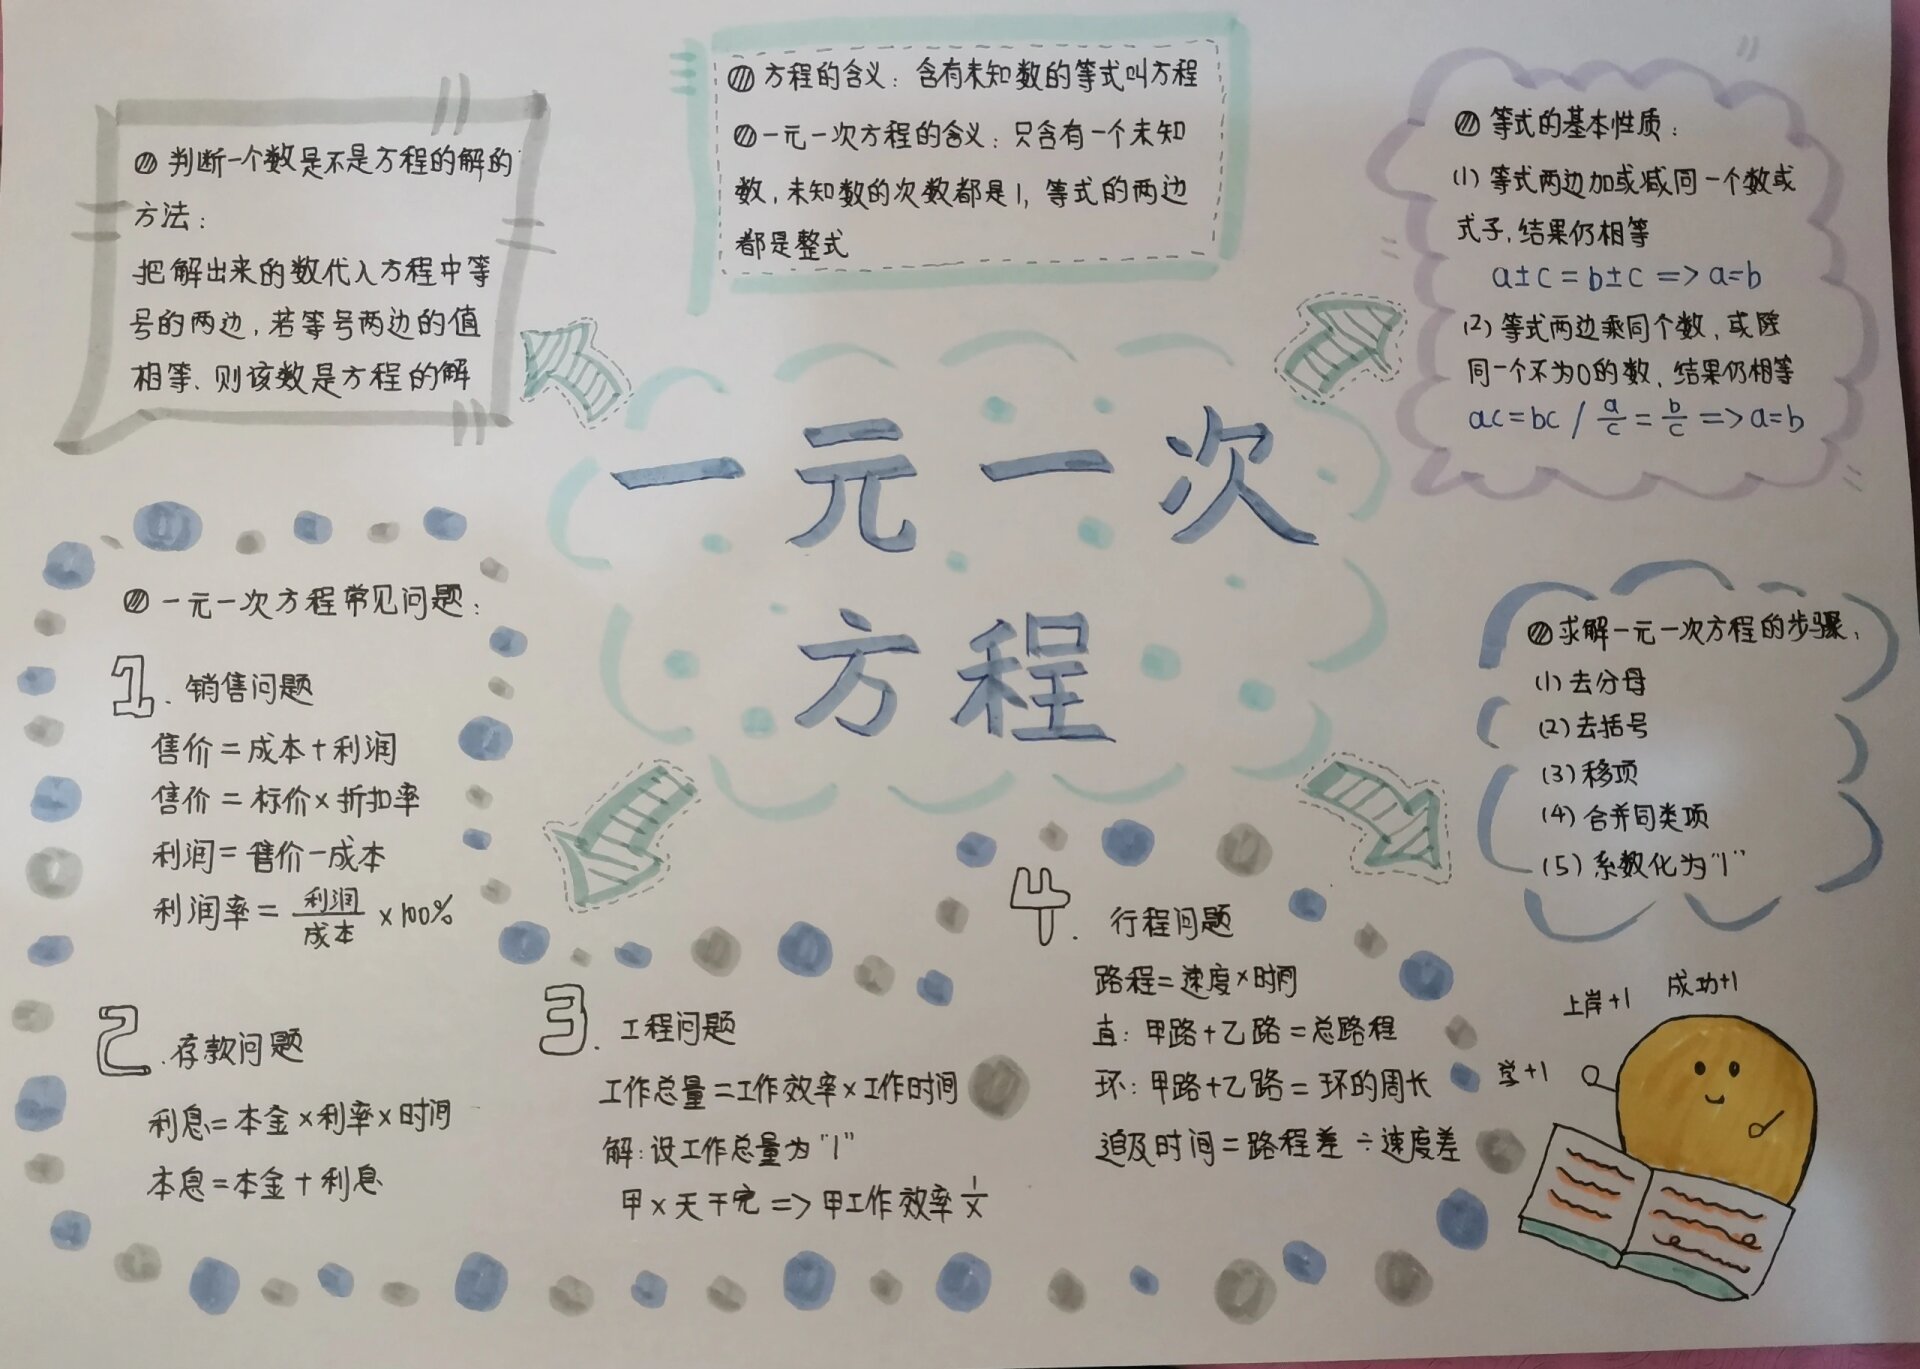 判断一个数是不是方程的解的
方法：
把解出来的数代入方程中等
号的两边，若等号两边的值
相等、则该数是方程的解
方程的含义：含有未知数的等式叫方程
一元一次方程的含义：只含有一个未知
数，未知数的次数都是1，等式的两边
都是整式
等式的基本性质：
(1) 等式两边加或减同一个数或
式子，结果仍相等
a±c=b±c=>a=b
(2) 等式两边乘同个数，或除
同一个不为0的数，结果仍相等
ac=bc / a/c = b/c => a=b
一元一次
方程
一元一次方程常见问题：
1. 销售问题
售价=成本+利润
售价=标价×折扣率
利润=售价-成本
利润率=利润/成本×100%
2. 存款问题
利息=本金×利率×时间
本息=本金+利息
3. 工程问题
工作总量=工作效率×工作时间
解：设工作总量为“1”
甲x天干完=>甲工作效率1/x
4. 行程问题
路程=速度×时间
直：甲路+乙路=总路程
环：甲路+乙路=环的周长
追及时间=路程差÷速度差
求解一元一次方程的步骤：
(1) 去分母
(2) 去括号
(3) 移项
(4) 合并同类项
(5) 系数化为“1”
上岸+1
成功+1
学+1